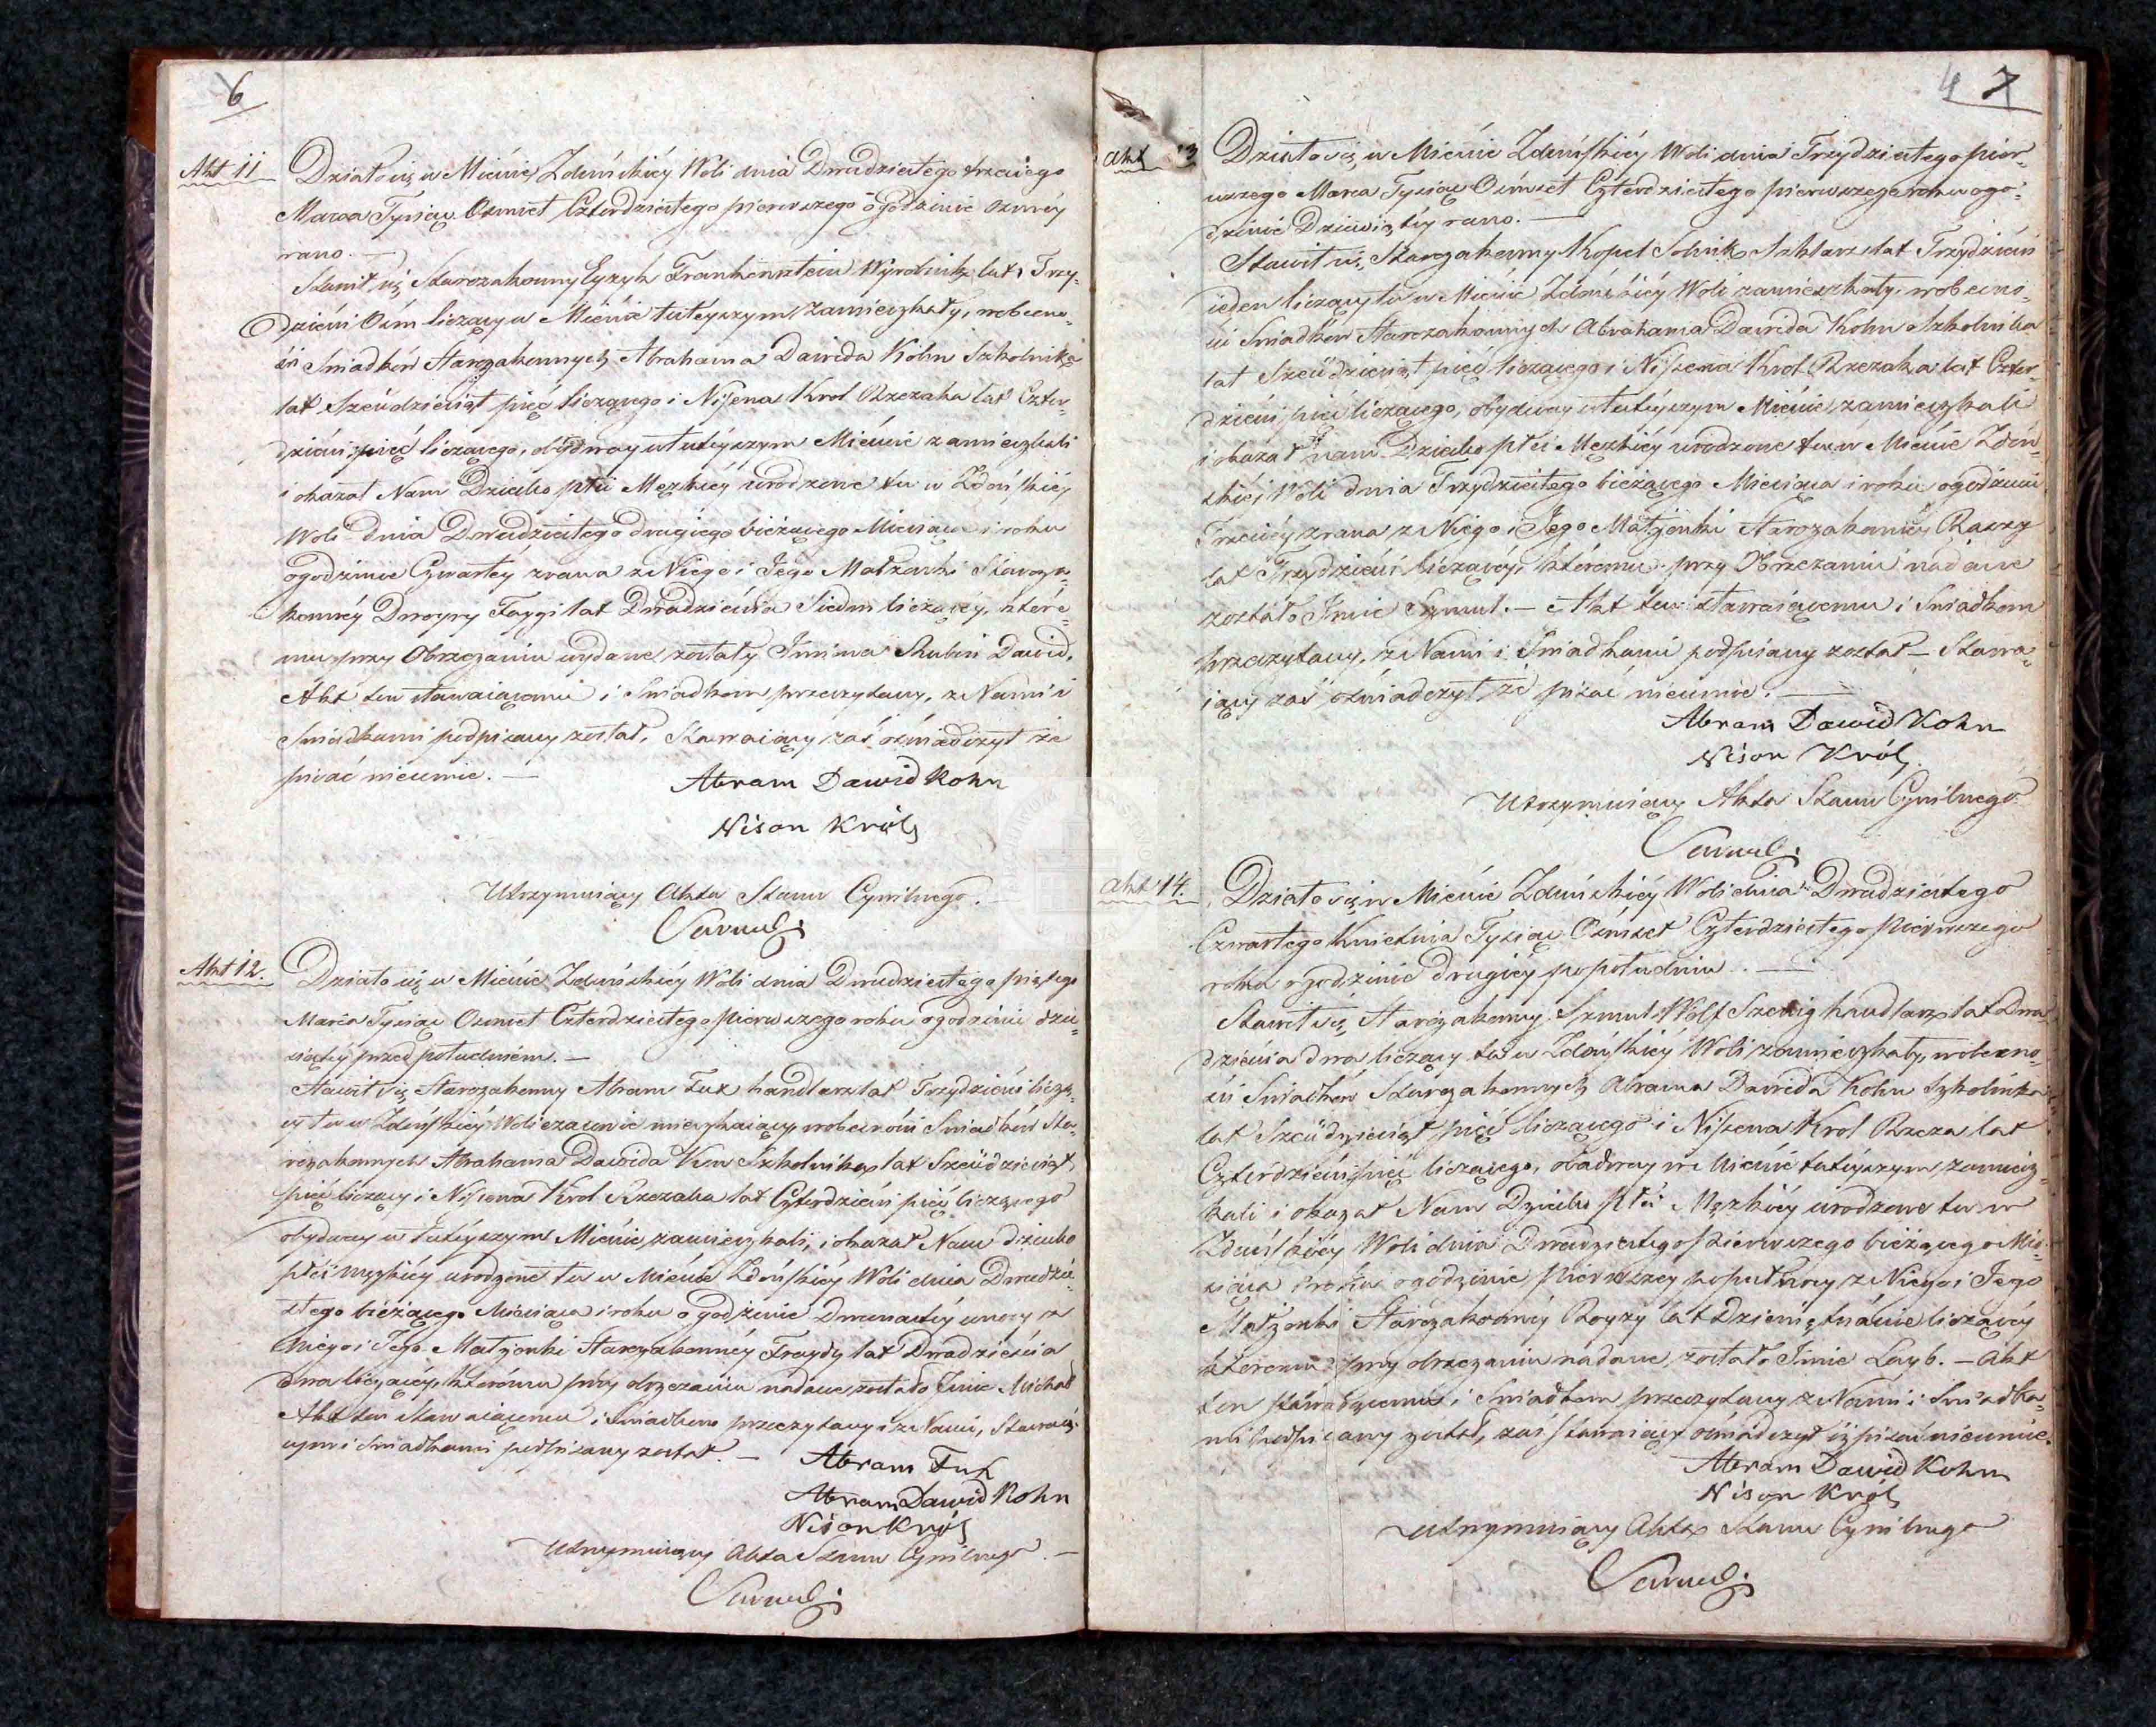 6
Akt 11
Działo się w Mieście Zduńskiéy Woli dnia Dwudziestego trzeciego
Marca Tysiąc Osmset Czterdziestego pierwszego o godzinie osméy
rano. —
Stawił się Starozakonny Ezyk Frankensztein Wyrobnik lat Trzy-
dzieści Ośm liczący w Mieście tutéyszym zamieszkały, w obecno-
ści Świadków Starozakonnych Abrahama Dawida Kohn Szkolnika
lat Sześdziesiąt pięć liczącego i Nisena Krol Rzezaka lat Czter-
dzieści pięć liczącego, obydway w tutéyszym Mieście zamieszkali
i okazał Nam Dziecko płci Męzkiéy urodzone tu w Zduńskiéy
Woli dnia Dwudziestego drugiego bieżącego Miesiąca i roku
o godzinie Czwartéy zrana z Niego i Jego Małżonki Staroza-
konnéy Dwoyry Faygi lat Dwadzieścia Siedm liczącéy, któré-
mu przy Obrzezaniu wydane zostały Imiona Rubin Dawid.
Akt ten stawaiącemu i Świadkom przeczytany, z Nami i
Świadkami podpisany został, Stawaiący zaś oświadczył że
pisać nieumie. —
Abram Dawid Kohn
Nison Król
Utrzymuiący Akta Stanu Cywilnego.
Akt 12.
Działo się w Mieście Zduńskiéy Woli dnia Dwudziestego piątego
Marca Tysiąc Osmset Czterdziestego pierwszego roku o godzinie dzie-
siątéy przed południem. —
Stawił się Starozakonny Abram Fux handlarz lat Trzydzieści liczą-
cy tu w Zduńskiéy Woli zamieszkaiący w obecności Świadków Sta-
rozakonnych Abrahama Dawida Kon Szkolnika lat Sześdziesiąt
pięć liczący i Nisena Krol Rzezaka lat Czterdzieści pięć liczącego
obydway w tutéyszym Mieście zamieszkali, i okazał Nam dziecko
płci męzkiéy urodzone tu w Mieście Zduńskiéy Woli dnia Dwudzie-
stego bieżącego Miesiąca i roku o godzinie Dwunastéy w nocy z
Niego i Jego Małżonki Starozakonnéy Fraydy lat Dwadzieścia
dwa liczącéy, któremu przy obrzezaniu nadane zostało Imie Michał
Akt ten stawaiącemu i Świadkom przeczytany i z Nami, Stawaią-
cym i Świadkami podpisany został. —
Abram Fux
Abram Dawid Kohn
Nison Król
Utrzymuiący Akta Stanu Cywilnego. —
4 7
Akt 13
Działo się w Mieście Zduńskiéy Woli dnia Trzydziestego pier-
wszego Marca Tysiąc Osmset Czterdziestego pierwszego roku o go-
dzinie Dziewiątéy rano. —
Stawił się Starozakonny Kopel Solnik Szklarz lat Trzydzieści
ieden liczący tu w Mieście Zduńskiéy Woli zamieszkały, w obecno-
ści Świadków Starozakonnych Abrahama Dawida Kohn Szkolnika
lat Sześdziesiąt pięć liczącego i Nissena Krol Rzezaka lat Czter-
dzieści pięć liczącego, obydway w tutéyszym Mieście zamieszkali
i okazał nam Dziecko płci Męzkiéy urodzone tu w Mieście Zduń-
skiéj Woli dnia Trzydziestego bieżącego Miesiąca i roku o godzinie
Trzeciéy zrana z Niégo i Jego Małżonki Starozakonnéy
lat Trzydzieści liczącéy, któremu przy Obrzezaniu nadane
zostało Imie Szmul. — Akt ten stawaiącemu i Świadkom
przeczytany, z Nami i Świadkami podpisany został — Stawa-
iący zaś oświadczył, że pisać nieumie. —
Abram Dawid Kohn
Nison Król
Utrzymuiący Akta Stanu Cywilnego
Akt 14.
Działo się w Mieście Zduńskiéy Woli dnia Dwudziestego
Czwartego Kwietnia Tysiąc Osmset Czterdziestego pierwszego
roku o godzinie drugiéy popołudniu. —
Stawił się Starozakonny Szmul Wolf handlarz lat Dwa-
dzieścia dwa liczący tu w Zduńskiéy Woli zamieszkały, w obecno-
ści Świadków Starozakonnych Abrama Dawida Kohn Szkolnika
lat Sześdziesiąt pięć liczącego i Nissena Krol Rzeza lat
Czterdzieści pięć liczącego, obadway w Mieście tutéyszym zamiesz-
kali i okazał Nam Dziecko Płci Męzkiéy urodzone tu w
Zduńskiéy Woli dnia Dwudziestego pierwszego bieżącego Mie-
siąca i roku o godzinie pierwszey z Niego i Jego
Małżonki Starozakonnéy Royzy lat Dziewiętnaście liczącéy
któremu przy obrzezaniu nadane zostało Imie Layb. — Akt
ten stawaiącemu i Świadkom przeczytany z Nami i Świadka-
mi podpisany został, zaś stawaiący oświadczył iż pisać nieumie.
Abram Dawid Kohn
Nison Król
Utrzymuiący Akta Stanu Cywilnego